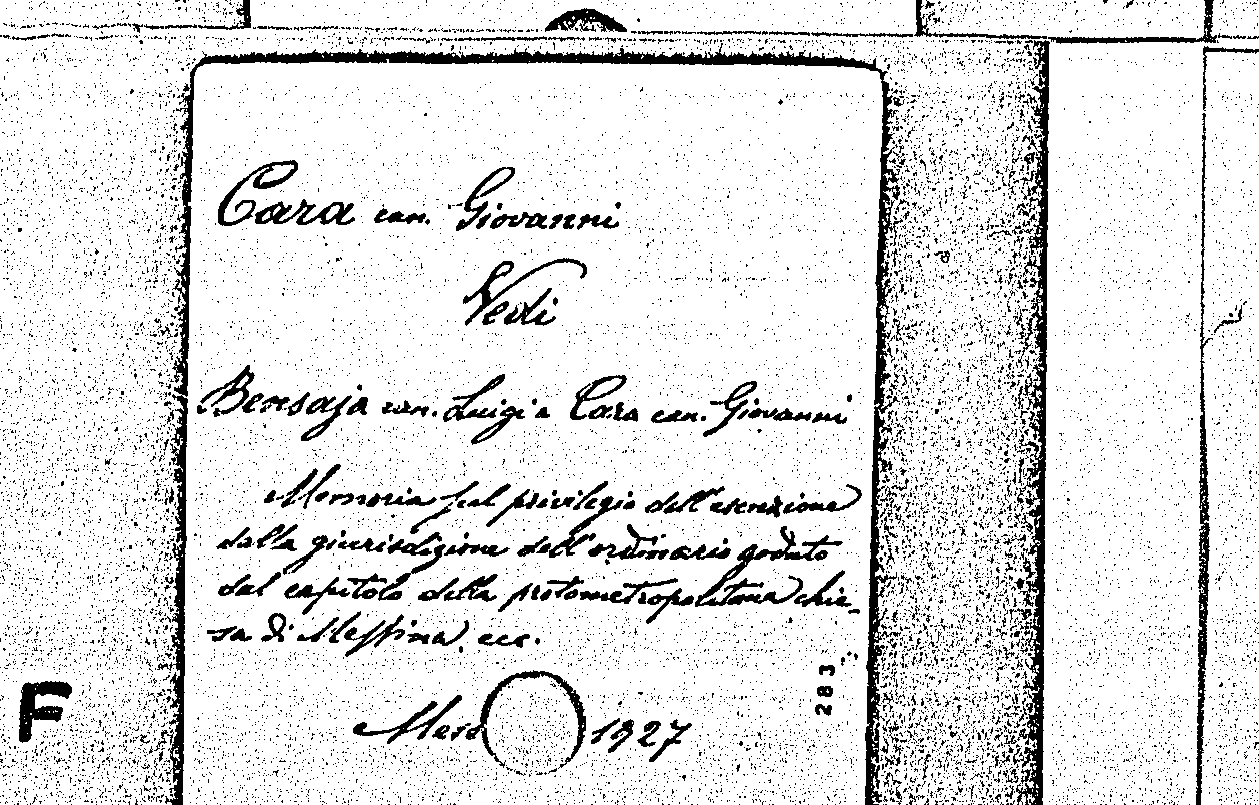 Cara can. Giovanni
Vedi
Bensaja can. Luigi a Cara can. Giovanni
Memoria sul privilegio dell'esenzione
dalla giurisdizione dell'ordinario goduto
dal capitolo della protometropolitana chie-
sa di Messina, ecc.
283
F
Mess 1927